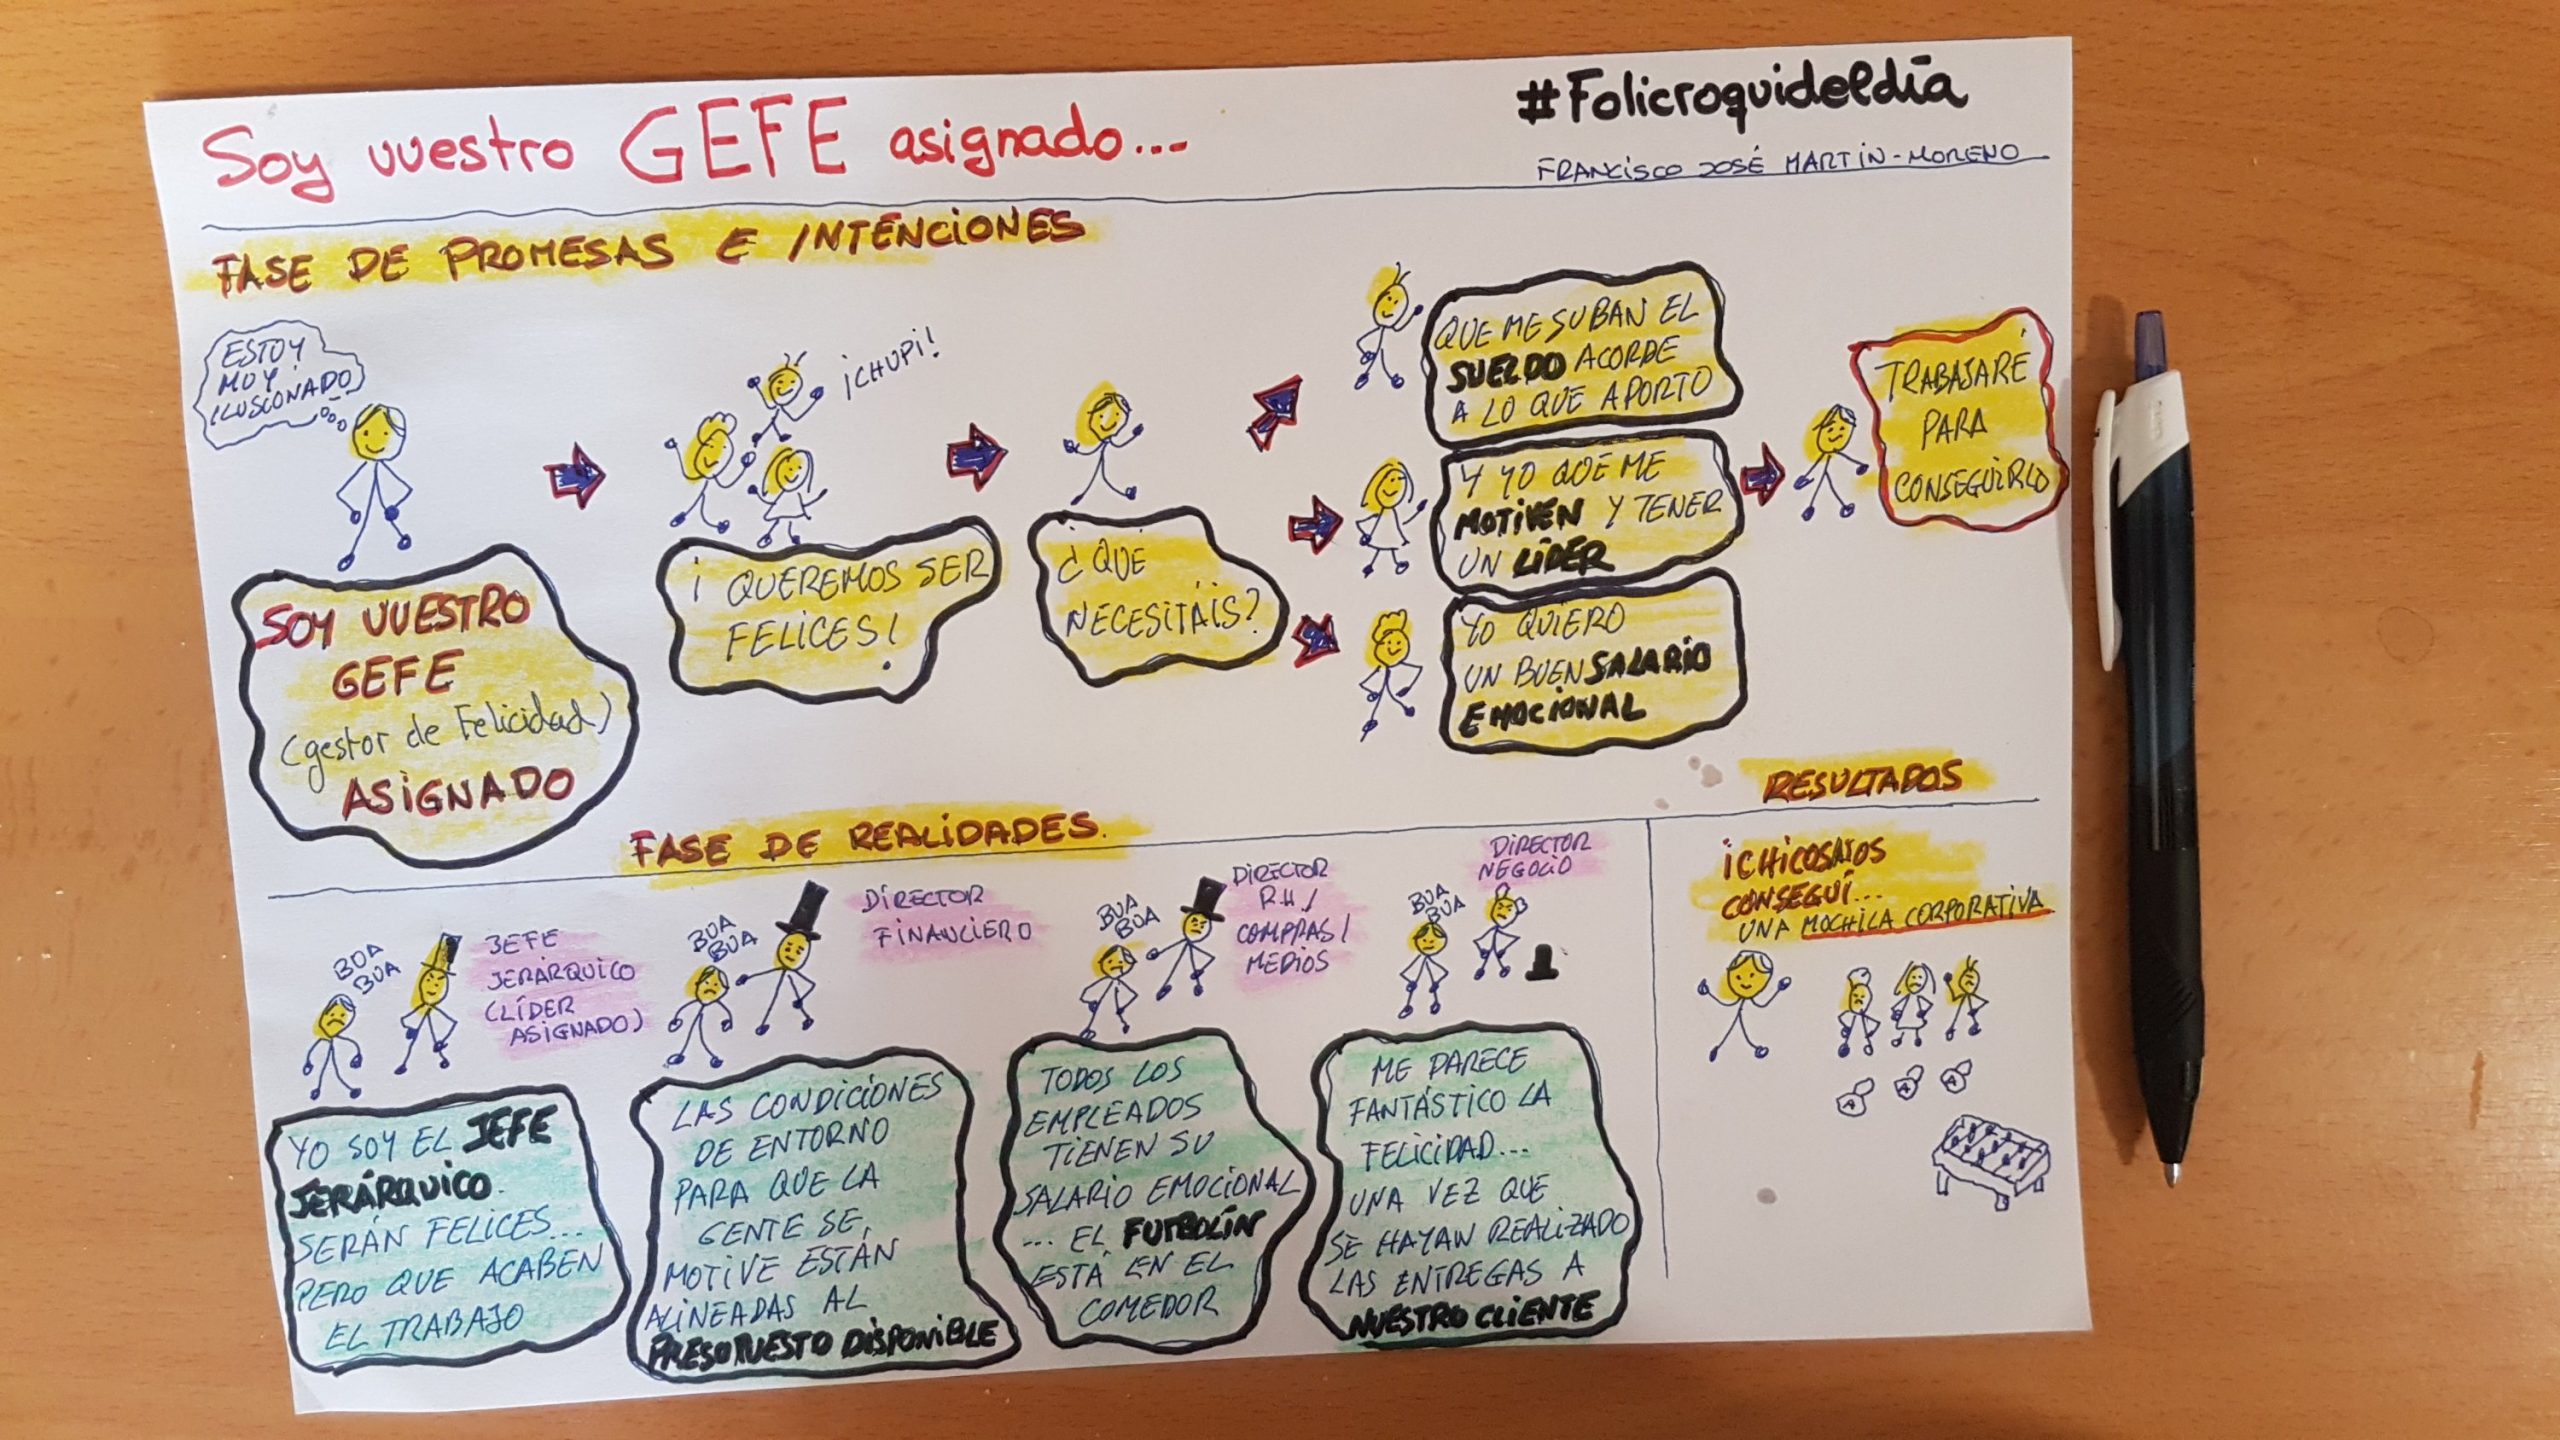 Soy vuestro GEFE asignado...
#Folicroquideldía
FRANCISCO JOSÉ MARTIN-MORENO
FASE DE PROMESAS E INTENCIONES
ESTOY
MUY
ILUSIONADO
SOY VUESTRO
GEFE
(gestor de Felicidad)
ASIGNADO
¡CHUPI!
¡QUEREMOS SER
FELICES!
¿QUÉ
NECESITÁIS?
QUE ME SUBAN EL
SUELDO ACORDE
A LO QUE APORTO
Y YO QUE ME
MOTIVEN Y TENER
UN LÍDER
YO QUIERO
UN BUEN SALARIO
EMOCIONAL
TRABAJARÉ
PARA
CONSEGUIRLO
FASE DE REALIDADES.
BUA
BUA
JEFE
JERÁRQUICO
(LÍDER
ASIGNADO)
YO SOY EL JEFE
JERÁRQUICO.
SERÁN FELICES...
PERO QUE ACABEN
EL TRABAJO
BUA
BUA
DIRECTOR
FINANCIERO
LAS CONDICIONES
DE ENTORNO
PARA QUE LA
GENTE SE
MOTIVE ESTÁN
ALINEADAS AL
PRESUPUESTO DISPONIBLE
BUA
BUA
DIRECTOR
R.H./
COMPRAS/
MEDIOS
TODOS LOS
EMPLEADOS
TIENEN SU
SALARIO EMOCIONAL
... EL FUTBOLÍN
ESTÁ EN EL
COMEDOR
BUA
BUA
DIRECTOR
NEGOCIO
ME PARECE
FANTÁSTICO LA
FELICIDAD...
UNA VEZ QUE
SE HAYAN REALIZADO
LAS ENTREGAS A
NUESTRO CLIENTE
RESULTADOS
¡CHICOS/AS OS
CONSEGUÍ...
UNA MOCHILA CORPORATIVA